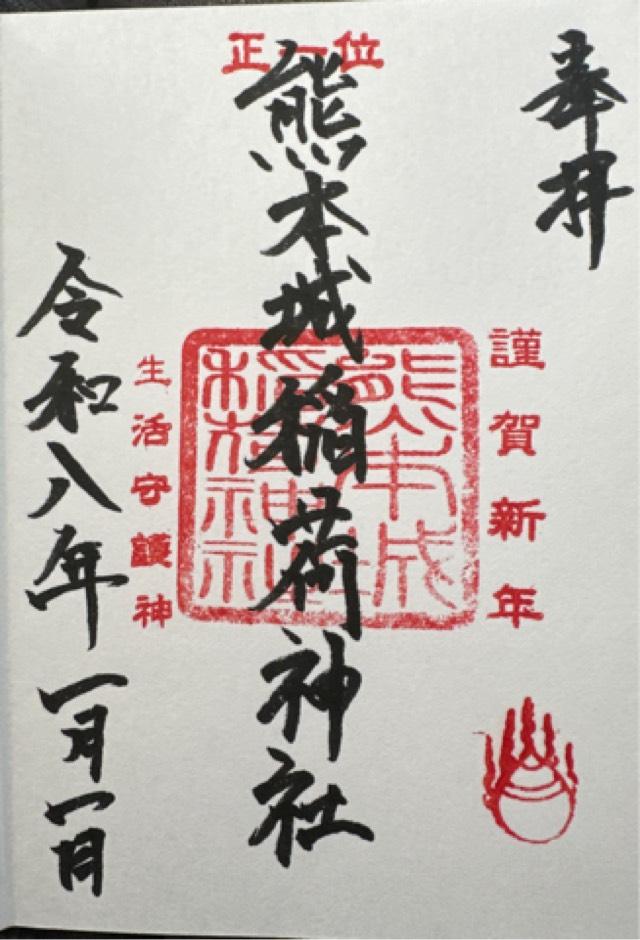 奉拝
謹賀新年
正一位
熊本城稲荷神社
熊本城
稲荷神社
生活守護神
令和八年一月一日